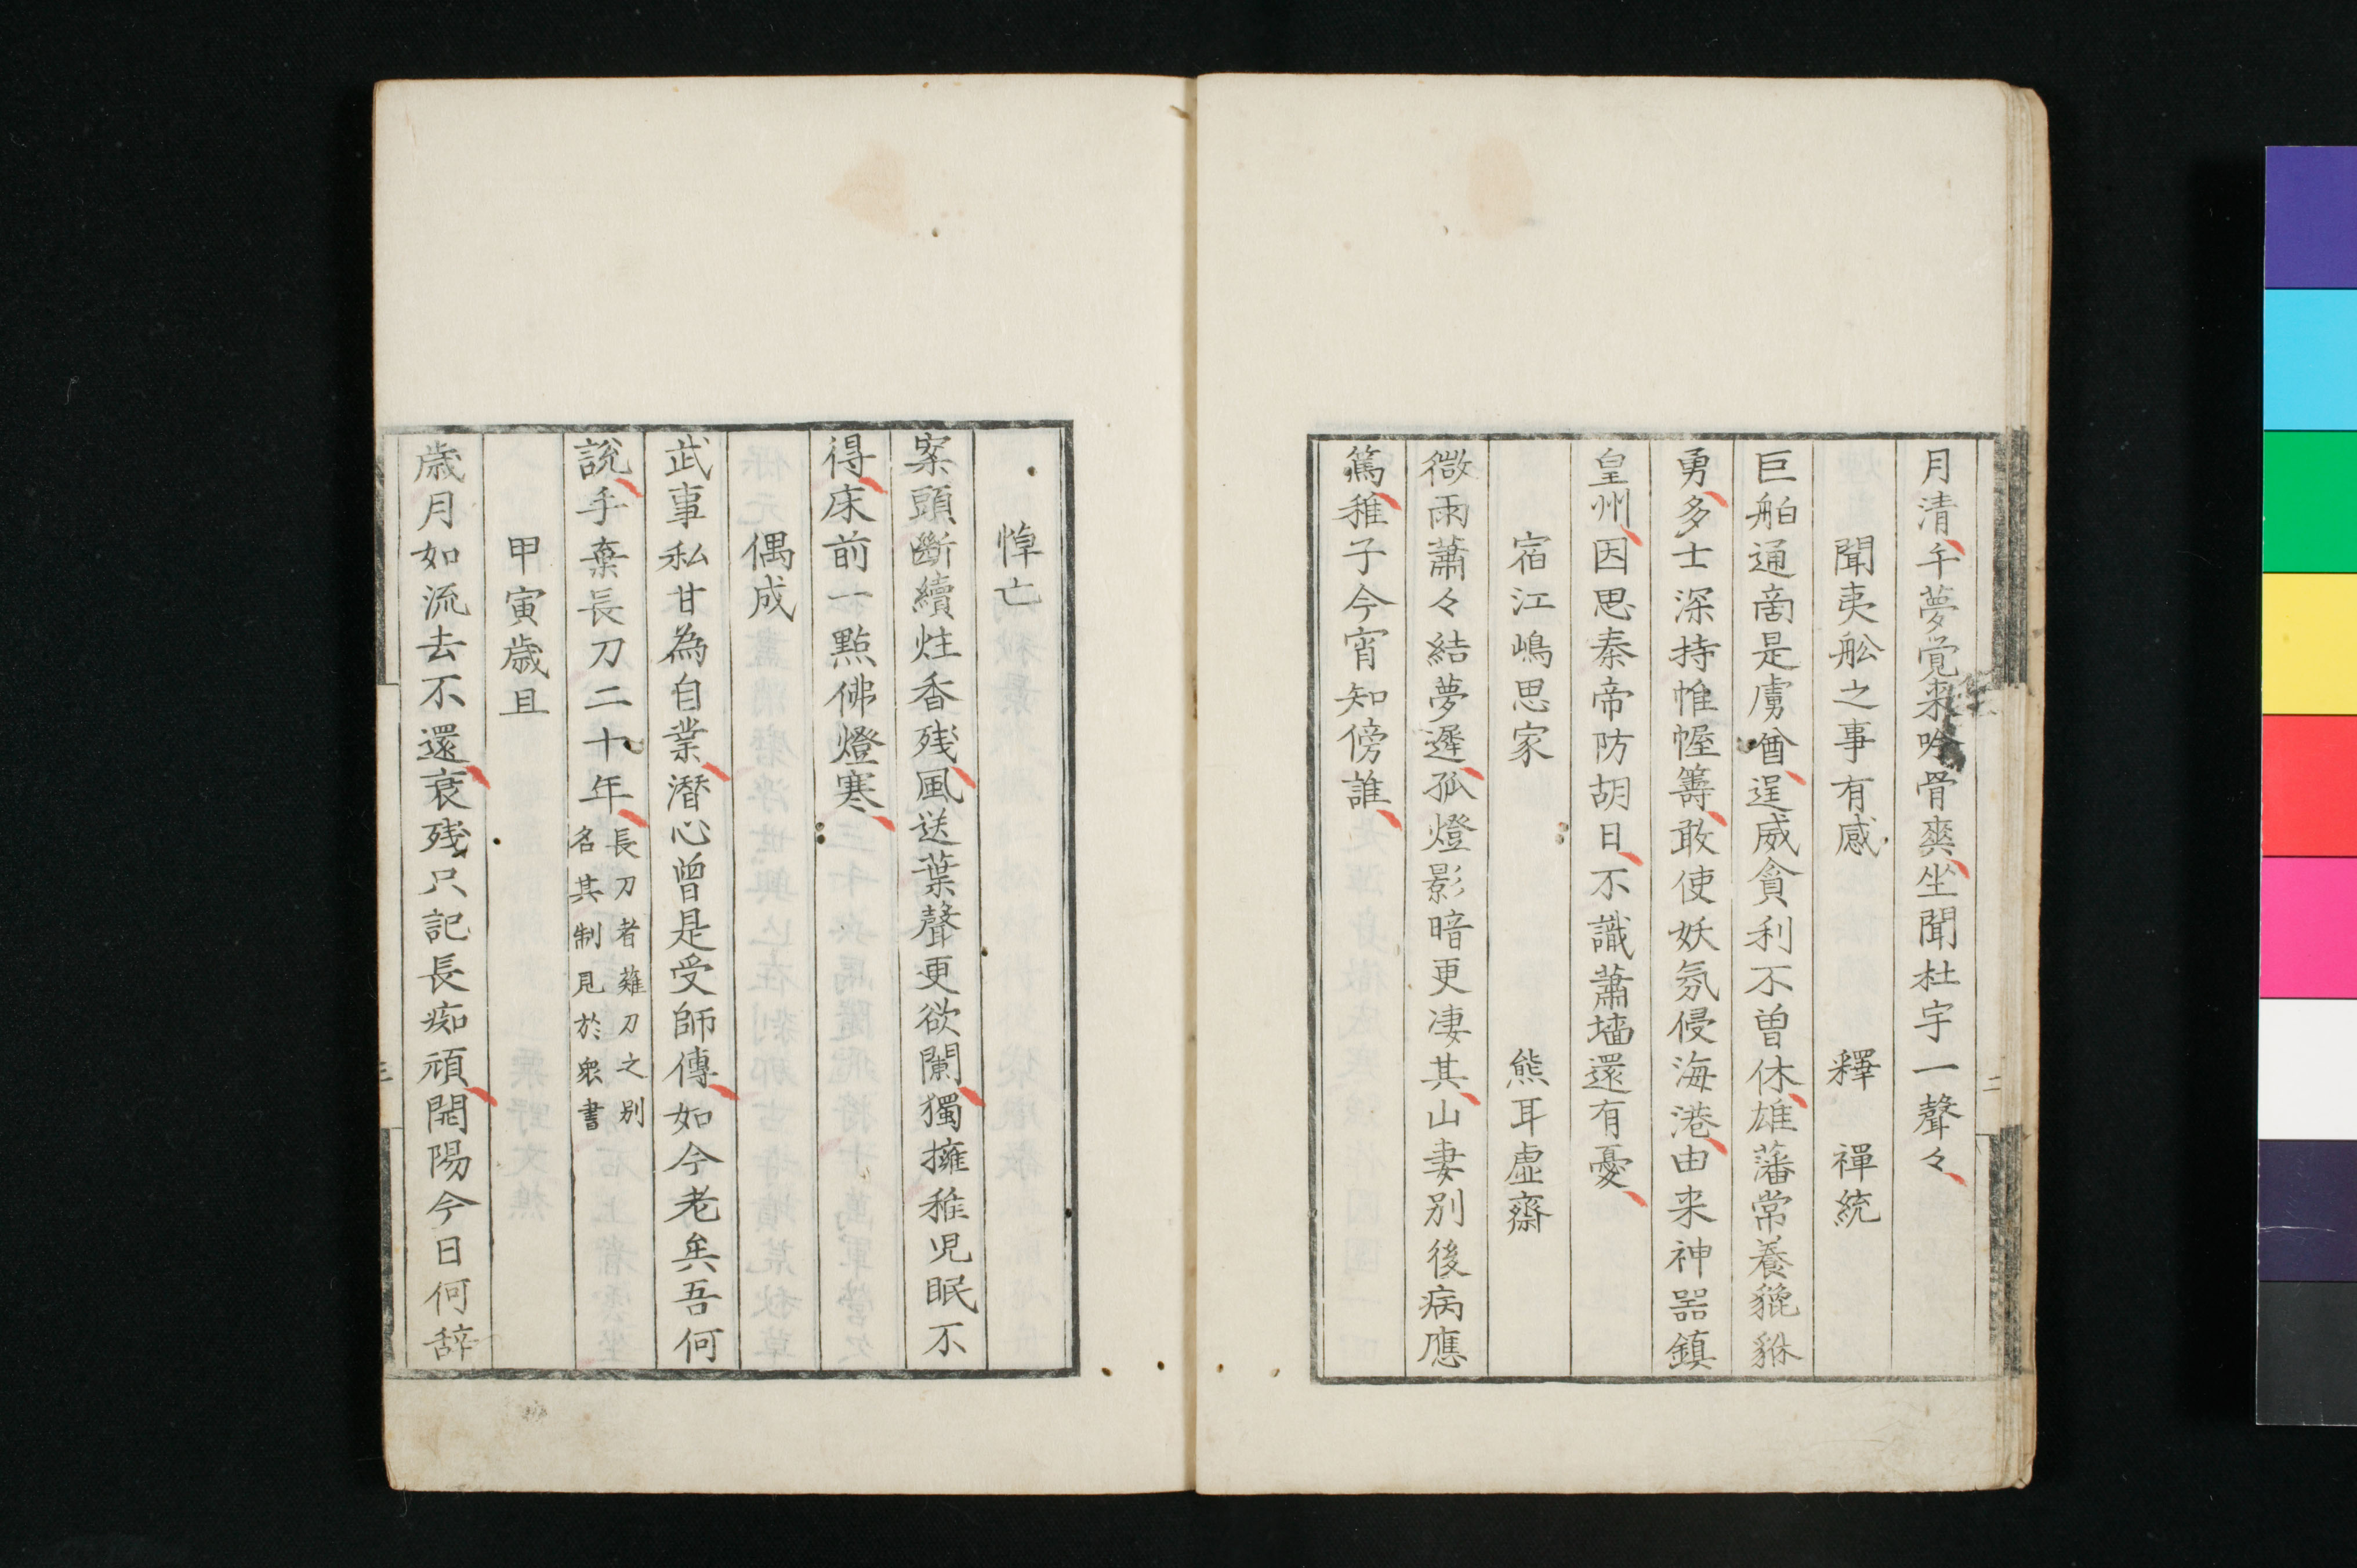 月清午夢覚来吟骨爽坐聞杜宇一聲々
聞夷舩之事有感　釋　禪統
巨舶通商是虜酋逞威貪利不曽休雄藩常養貔貅
勇多士深持帷幄籌敢使妖氛侵海港由来神器鎮
皇州因思秦帝防胡日不識蕭墻還有憂
宿江嶋思家　熊耳虚齋
微雨蕭々結夢遲孤燈影暗更凄其山妻別後病應
篤稚子今宵知傍誰
二
悼亡
案頭斷續炷香残風送葉聲更欲闌獨擁稚児眠不
得床前一點佛燈寒
偶成
武事私甘為自業潜心曽是受師傳如今老矣吾何
說手棄長刀二十年
長刀者薙刀之別
名其制見於衆書
甲寅歳旦
歳月如流去不還衰残只記長痴頑開陽今日何辞
三